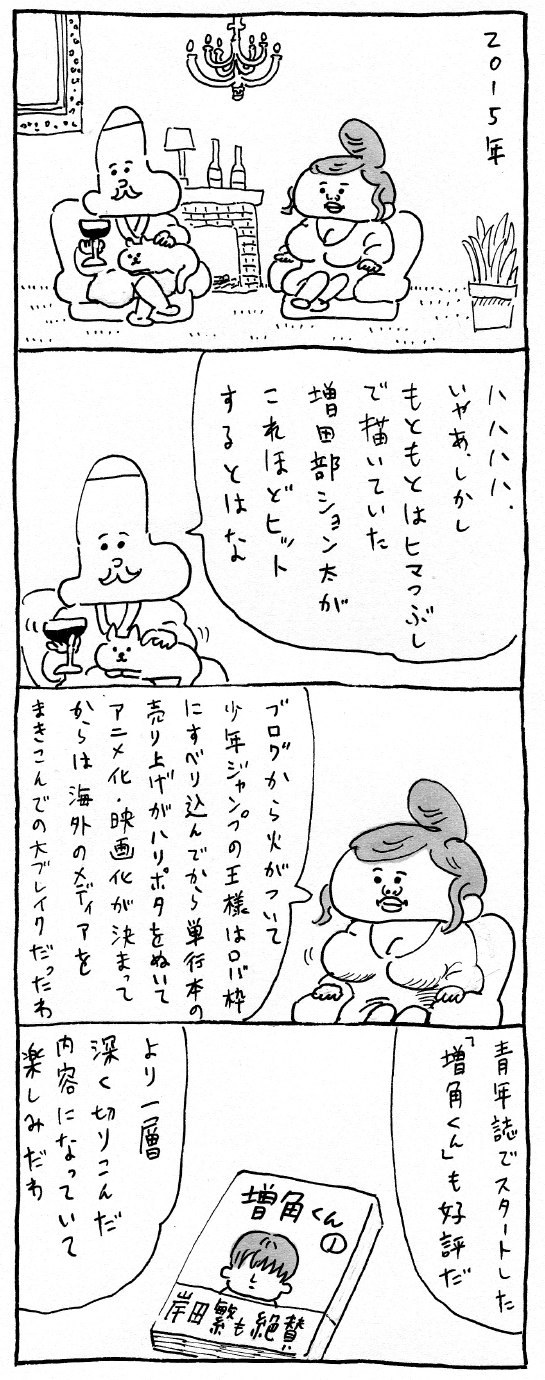 2015年
ハハハハ、
いやあ、しかし
もともとはヒマつぶし
で描いていた
増田部ション太が
これほどヒット
するとはな
ブログから火がついて
少年ジャンプの王様はロバ枠
にすべり込んでから単行本の
売り上げがハリポタをぬいて
アニメ化・映画化が決まって
からは海外のメディアを
まきこんでの大ブレイクだったわ
青年誌でスタートした
「増角くん」も好評だ
より一層
深く切りこんだ
内容になっていて
楽しみだわ
増角くん
1
岸田繁も絶賛